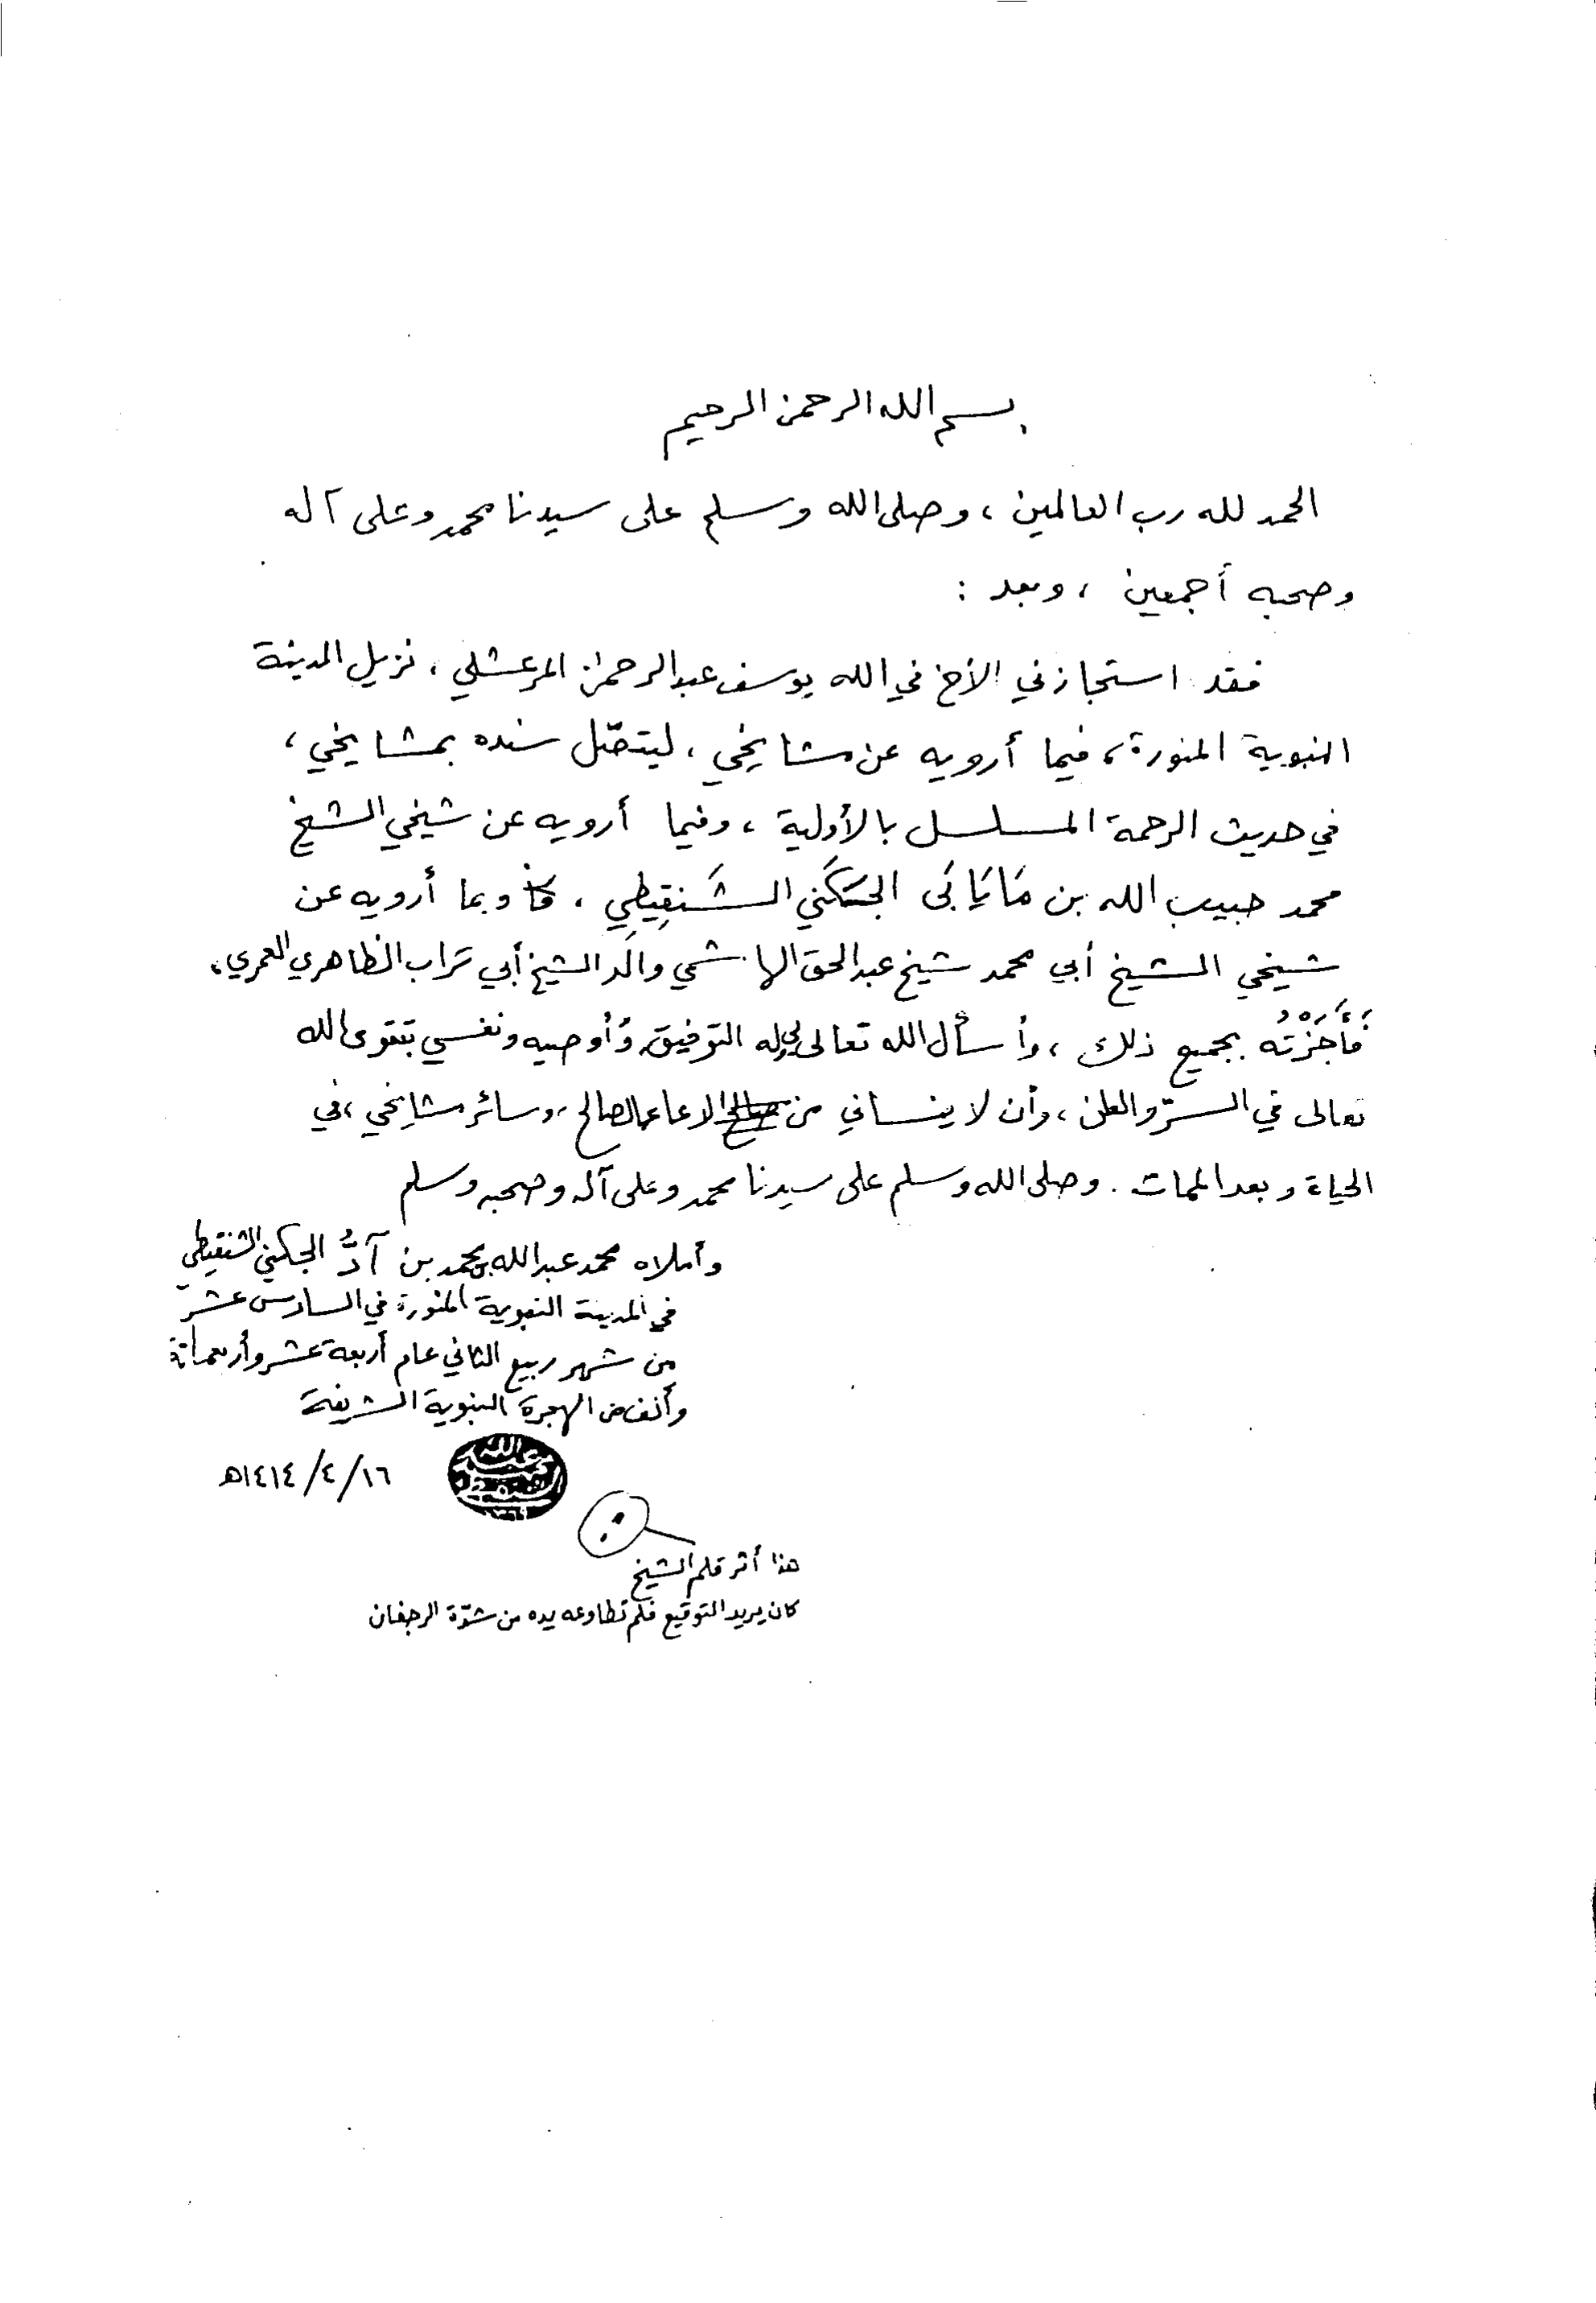 بسم الله الرحمن الرحيم
الحمد لله رب العالمين ، وصلى الله وسلم على سيدنا محمد وعلى آله
وصحبه أجمعين ، وبعد :
فقد استجازني الأخ في الله يوسف عبد الرحمن المرعشلي ، نزيل المدينة
النبوية المنورة ، فيما أرويه عن مشايخي ، ليتصّل سنده بمشايخي ،
في حديث الرحمة المسلسل بالأولية ، وفيما أرويه عن شيخي الشيخ
محمد حبيب الله بن مَايَابَى الجَكَني الشَنقِيطِي ، وبما أرويه عن
شيخي الشيخ أبي محمد شيخ عبد الحق الهاشمي والد الشيخ أبي تراب الظاهري العمري ،
فَأَجَزْتُه بجميع ذلك ، وأسأل الله تعالى لي وله التوفيق ، وأوصيه ونفسي بتقوى الله
تعالى في السرّ والعلن ، وأن لا ينساني من الدعاء الصالح ، وسائر مشايخي ، في
الحياة وبعد الممات . وصلى الله وسلم على سيدنا محمد وعلى آله وصحبه وسلم
وأملاه محمد عبد الله بن محمد بن آدُّ الجكني الشنقيطي
في المدينة النبوية المنورة في السادس عشر
من شهر ربيع الثاني عام أربعة عشر وأربعمائة
وألف من الهجرة النبوية الشريفة
١٦/٤/١٤١٤هـ
هذا أثر قلم الشيخ
كان يريد التوقيع فلم تطاوعه يده من شدّة الرجفان